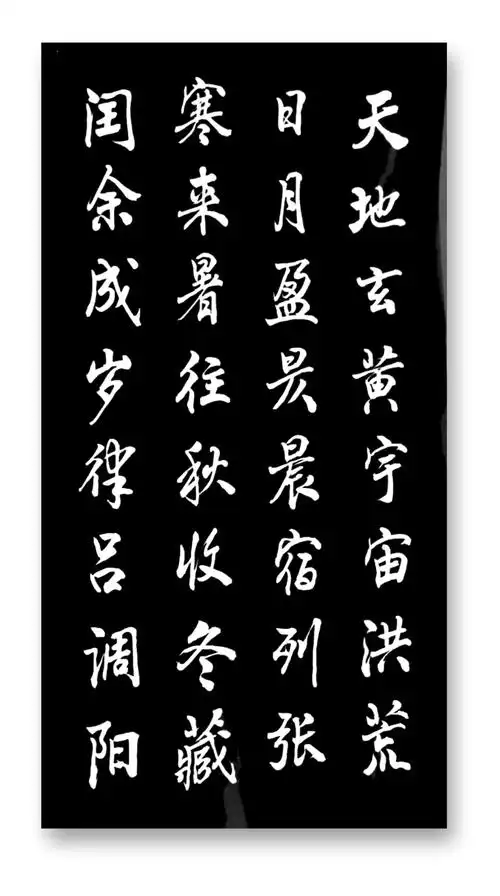 天地玄黄宇宙洪荒
日月盈昃辰宿列张
寒来暑往秋收冬藏
闰余成岁律吕调阳